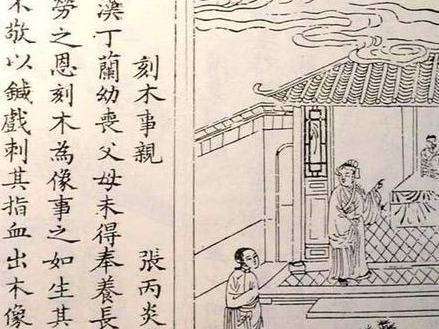 刻木事親　張丙炎
漢丁蘭幼喪父母未得奉養長
勞之恩刻木為像事之如生其
不敬以鍼戲刺其指血出木像